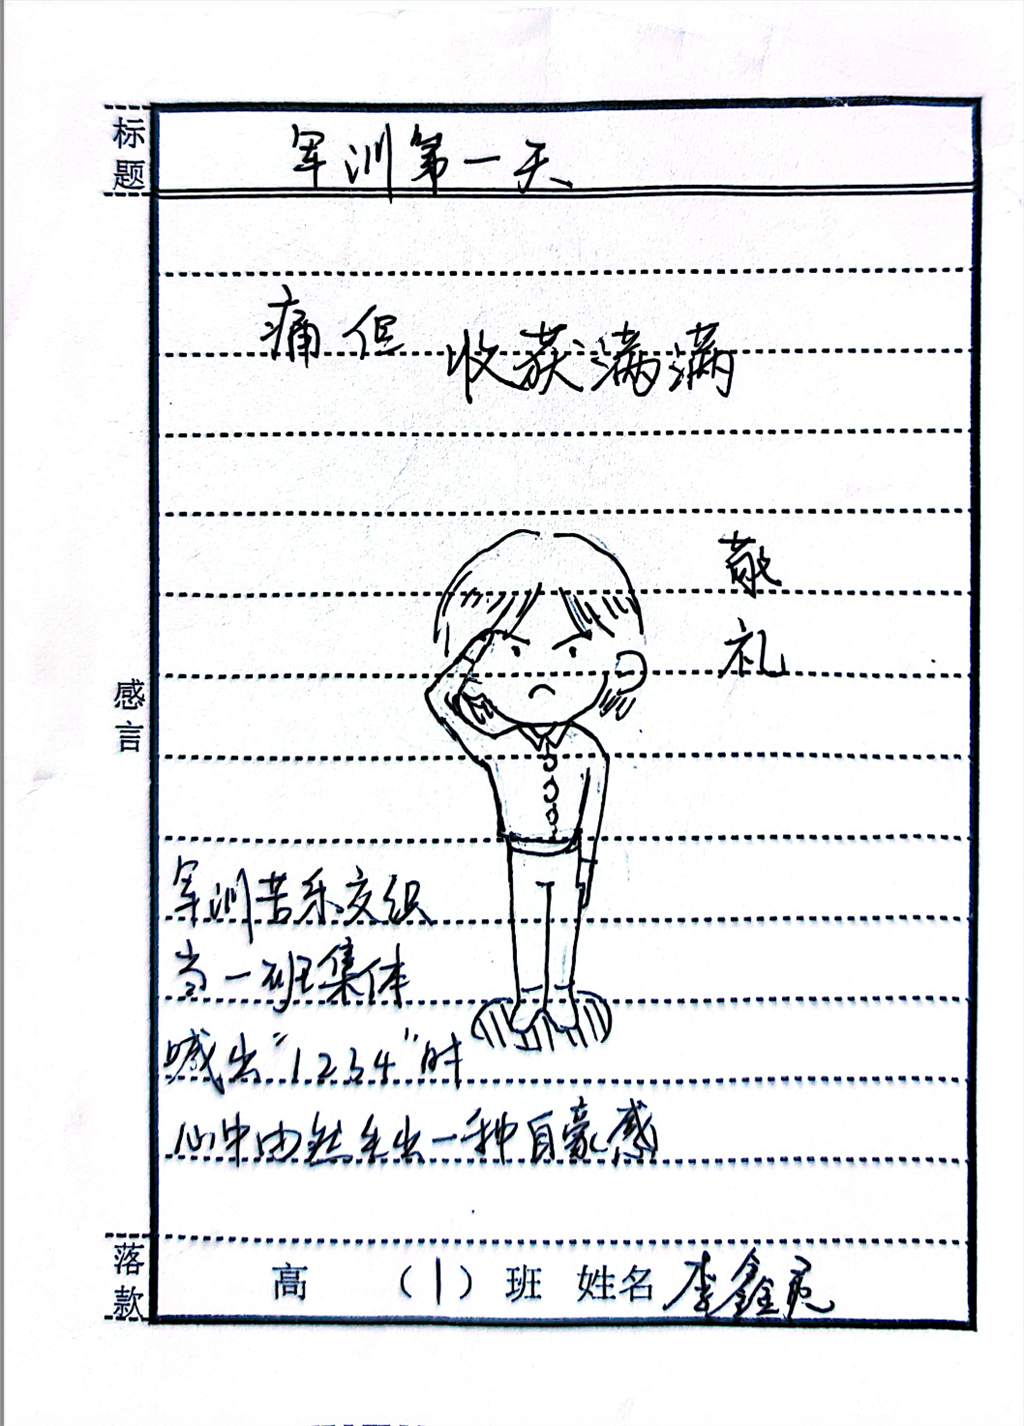 标题
军训第一天
痛但 收获满满
敬
礼
感言
军训苦乐交织
当一班集体
喊出“1234”时
心中由然生出一种自豪感
落款
高 （1）班 姓名 李鑫